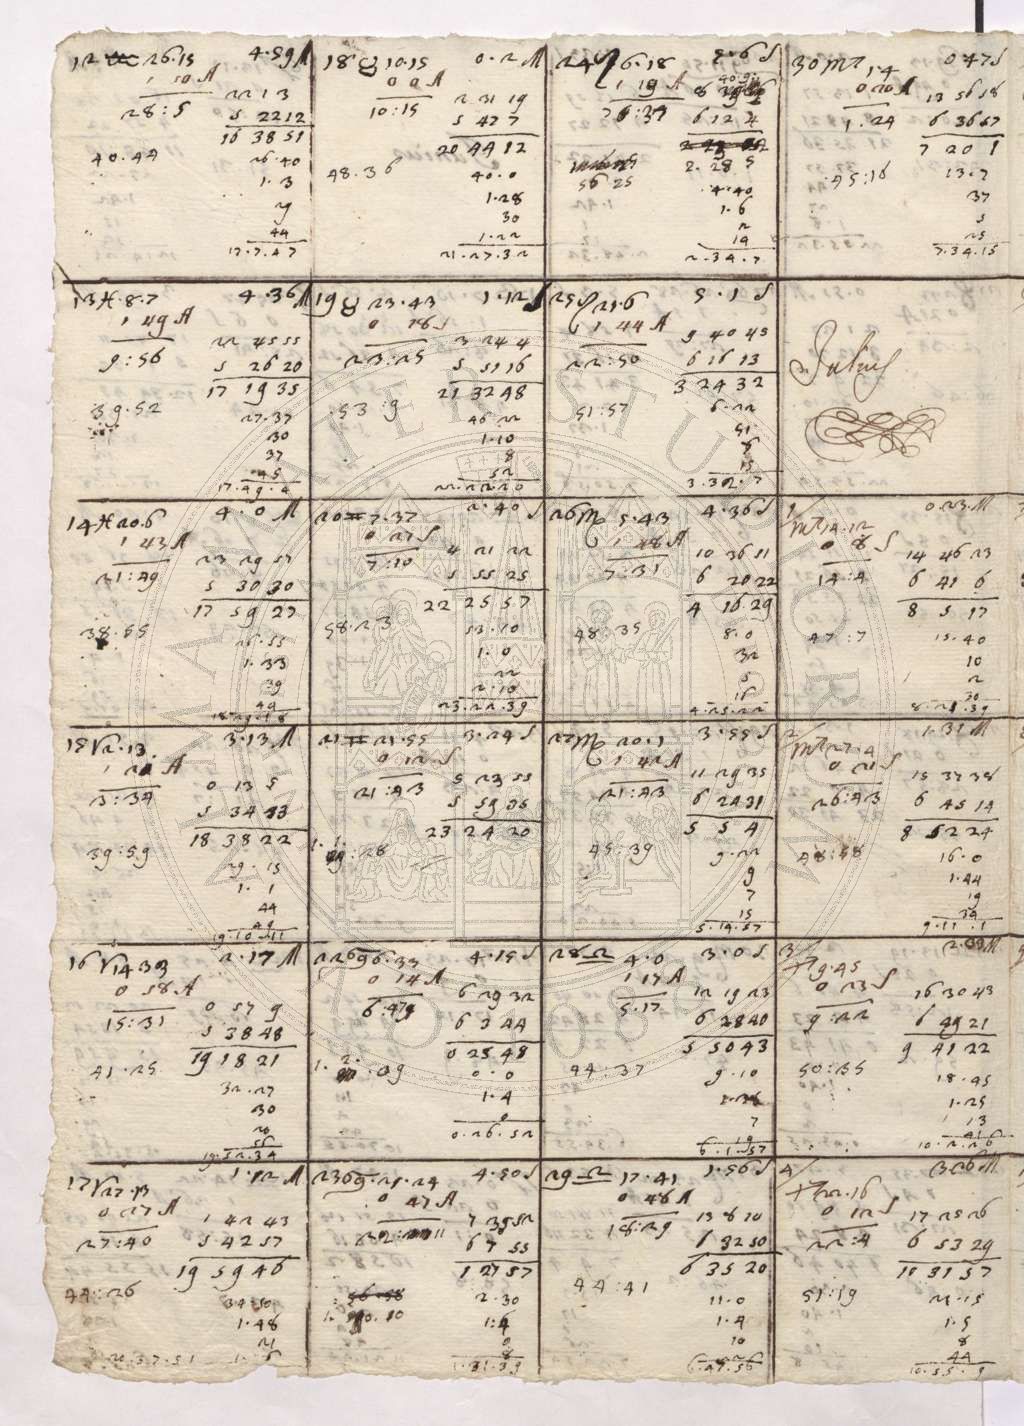 12 ♒ 26.15 4.59 M
1 50 A
28:5
22 1 3
5 22 12
16 38 51
40.44
26.40
1.3
44
17.7.47
18 ♉ 10.15 0.2 M
0 0 A
10:15
2 31 19
5 47 7
20 44 12
48.36
40.0
1.28
30
1.22
21.27.32
24 ♌ 6.18 5.6 S
1 19 A
7 6:37
6 12 4
2.28 5
56 25
4.40
1.6
2
19
2.34.7
30 ♏ 1.4 0 47 S
0 20 A
1.24
13 56 58
6 36 57
7 20 1
45:16
13.7
37
5
25
7.34.15
13 ♓ 8.7 4.36 M
1 49 A
9:56
22 45 55
5 26 20
17 19 35
39.52
27.37
30
37
45
17.49.4
19 ♉ 23.43 1.12 S
0 18 S
23:25
3 24 4
5 51 16
21 32 48
53:9
46 22
1.10
8
52
22.22.20
25 ♌ 21.6 5.1 S
1 44 A
22:50
9 40 45
6 16 13
3 24 32
51:57
6.22
51
6
15
3.32.7
Julius
14 ♓ 20.6 4.0 M
1 43 A
21:49
23 29 57
5 30 30
17 59 27
38.55
26.55
1.33
39
49
20 ♊ 7.37 2.40 S
0 27 S
7:10
4 21 22
5 55 25
22 25 57
58.23
53.10
1.0
22
2.10
23.22.39
26 ♍ 5.43 4.36 S
1 48 A
7:31
10 36 51
6 20 22
4 16 29
48:35
8.0
32
5
16
4.25.22
1/
♏ 14.12 0.23 M
0 8 S
14:4
14 46 23
6 41 6
8 5 17
47:7
15.40
10
2
30
8.21.39
15 ♈ 2.13 3.13 M
1 21 A
3:34
0 13 5
5 34 43
18 38 22
39:59
29.15
1.1
44
49
19.10.11
21 ♊ 21.55 3.24 S
0 12 S
21:43
5 23 55
5 59 35
23 24 20
27 ♍ 20.1 3.55 S
1 42 A
21:43
11 29 35
6 24 31
5 5 4
45:39
9.22
9
7
15
5.14.57
2/
♏ 27.4 1.31 M
0 21 S
26:43
15 37 38
6 45 14
8 52 24
48:58
16.0
1.44
19
39
9.11.1
16 ♈ 14 33 2.17 M
0 58 A
15:31
0 57 9
5 38 48
19 18 21
41.25
32.27
30
20
56
19.52.34
22 ♋ 6.33 4.15 S
0 14 A
6:47
6 29 32
6 3 44
0 25 48
0.0
1.4
0
0.26.52
28 ♎ 4.0 3.0 S
1 17 A
5.17
12 19 23
6 28 40
5 50 43
44:37
9.10
1.38
7
19
6.1.57
3/
♐ 9.45 2.09 M
0 23 S
9:22
16 30 43
6 49 21
9 41 22
50:35
18.45
1.25
1 13
41
10.2.26
17 ♈ 27.13 1.12 M
0 27 A
27:40
1 42 43
5 42 57
19 59 46
44:26
34.50
1.48
21
20.37.51
23 ♋ 21.24 4.50 S
0 47 A
7 39 52
6 7 55
1 27 57
2.30
1:4
0
8
1.31.39
29 ♎ 17.41 1.56 S
0 48 A
18:29
13 8 10
6 32 50
6 35 20
44:41
11.0
1.4
10
6.47.56
4/
♐ 22.16 3.26 M
0 12 S
22:4
17 25 26
6 53 29
10 31 57
51:19
21.15
1.5
8
44
10.55.9